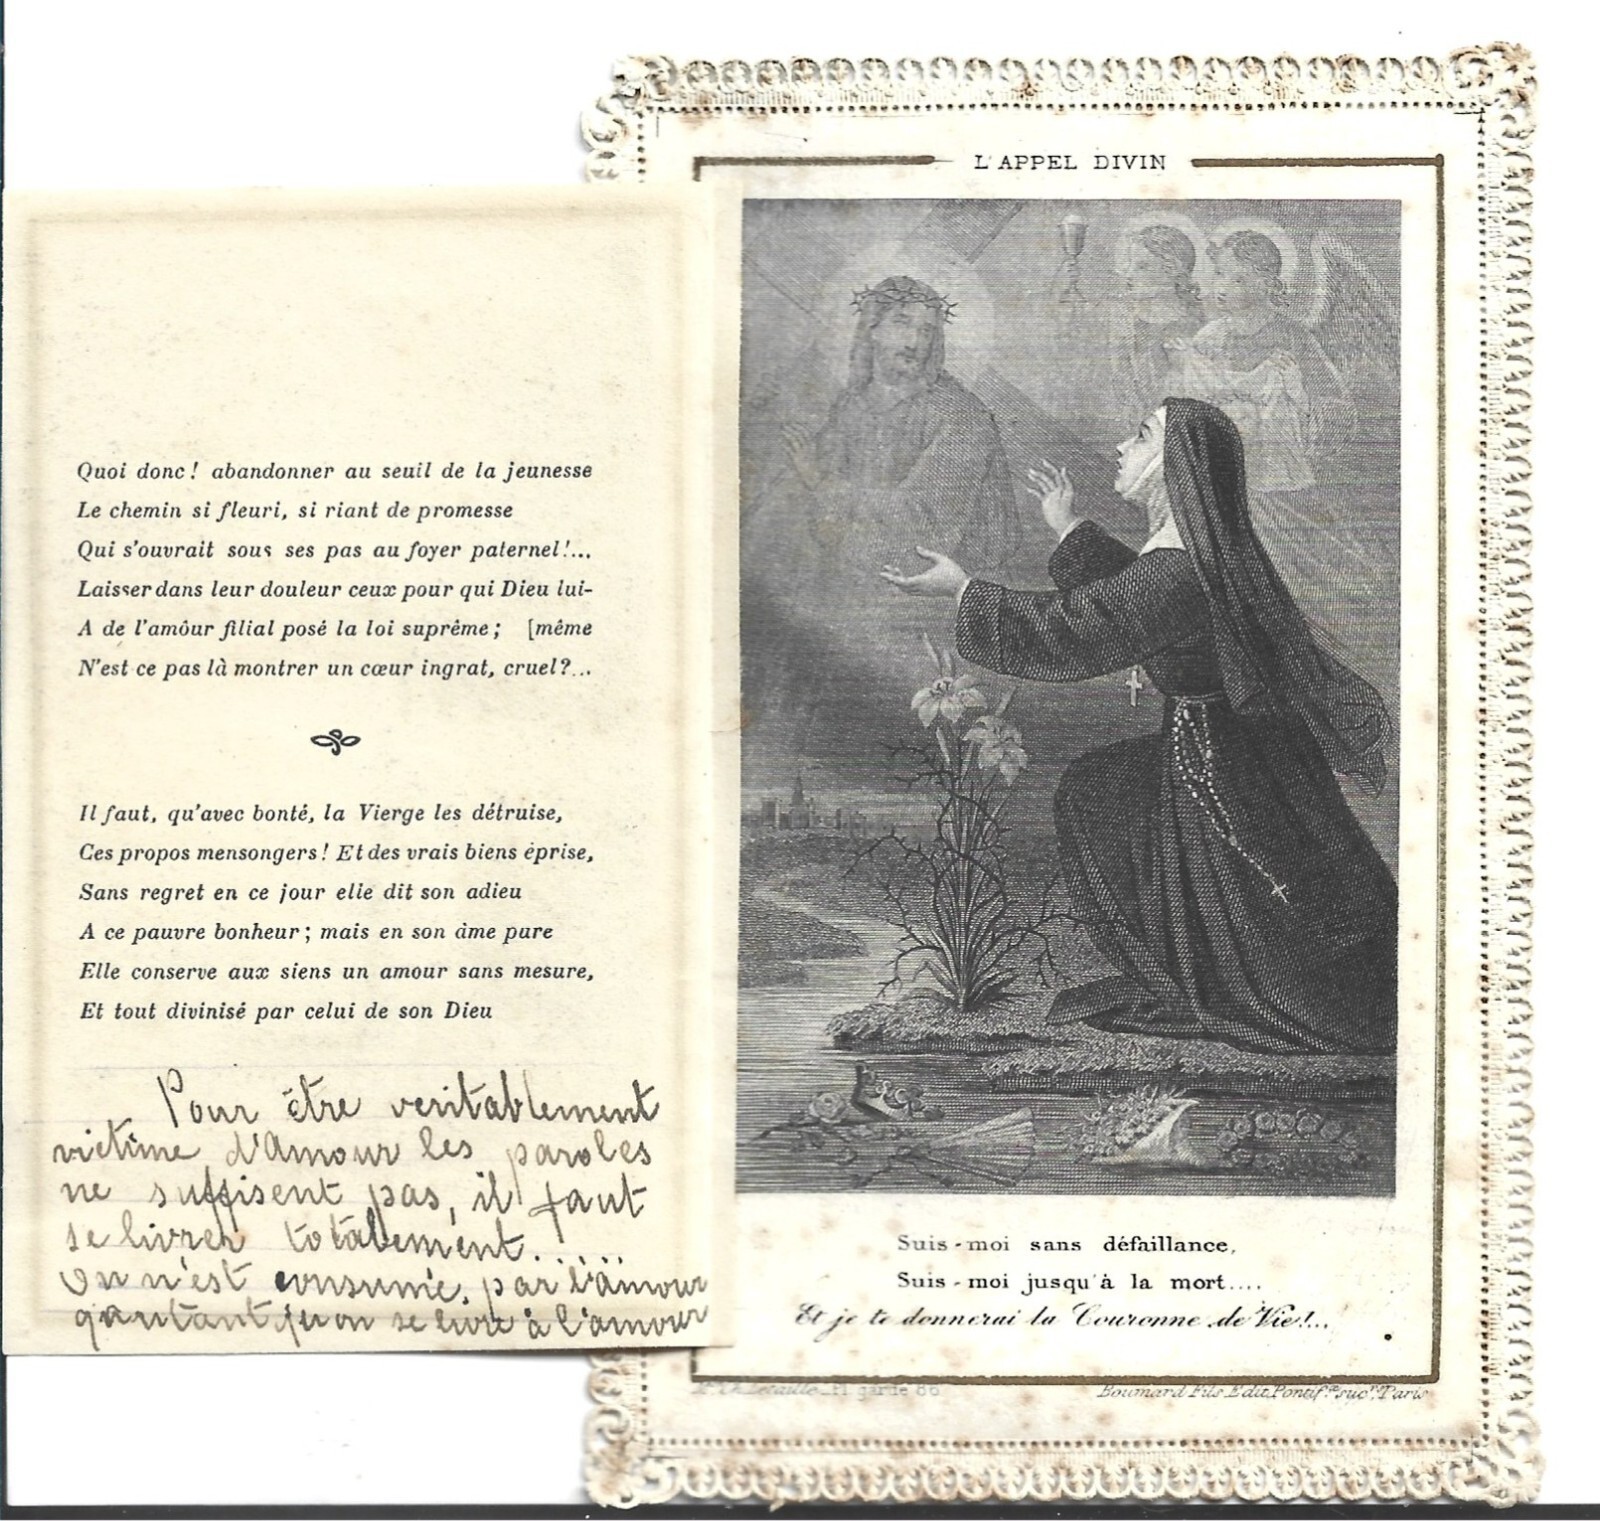 Quoi donc! abandonner au seuil de la jeunesse
Le chemin si fleuri, si riant de promesse
Qui s'ouvrait sous ses pas au foyer paternel!...
Laisser dans leur douleur ceux pour qui Dieu lui-
A de l'amour filial posé la loi suprême; [même
N'est ce pas là montrer un cœur ingrat, cruel?...
Il faut, qu'avec bonté, la Vierge les détruise,
Ces propos mensongers! Et des vrais biens éprise,
Sans regret en ce jour elle dit son adieu
A ce pauvre bonheur; mais en son âme pure
Elle conserve aux siens un amour sans mesure,
Et tout divinisé par celui de son Dieu
Pour être veritablement
victime d'Amour les paroles
ne suffisent pas, il faut
se livrer totalement.....
On n'est consumé par l'amour
qu'autant qu'on se livre à l'amour
L'APPEL DIVIN
Suis-moi sans défaillance,
Suis-moi jusqu'à la mort....
Et je te donnerai la Couronne de Vie!...
Mon Ch. Letaille Pl garde 86
Boumard Fils Edit. Pontif. suc. Paris